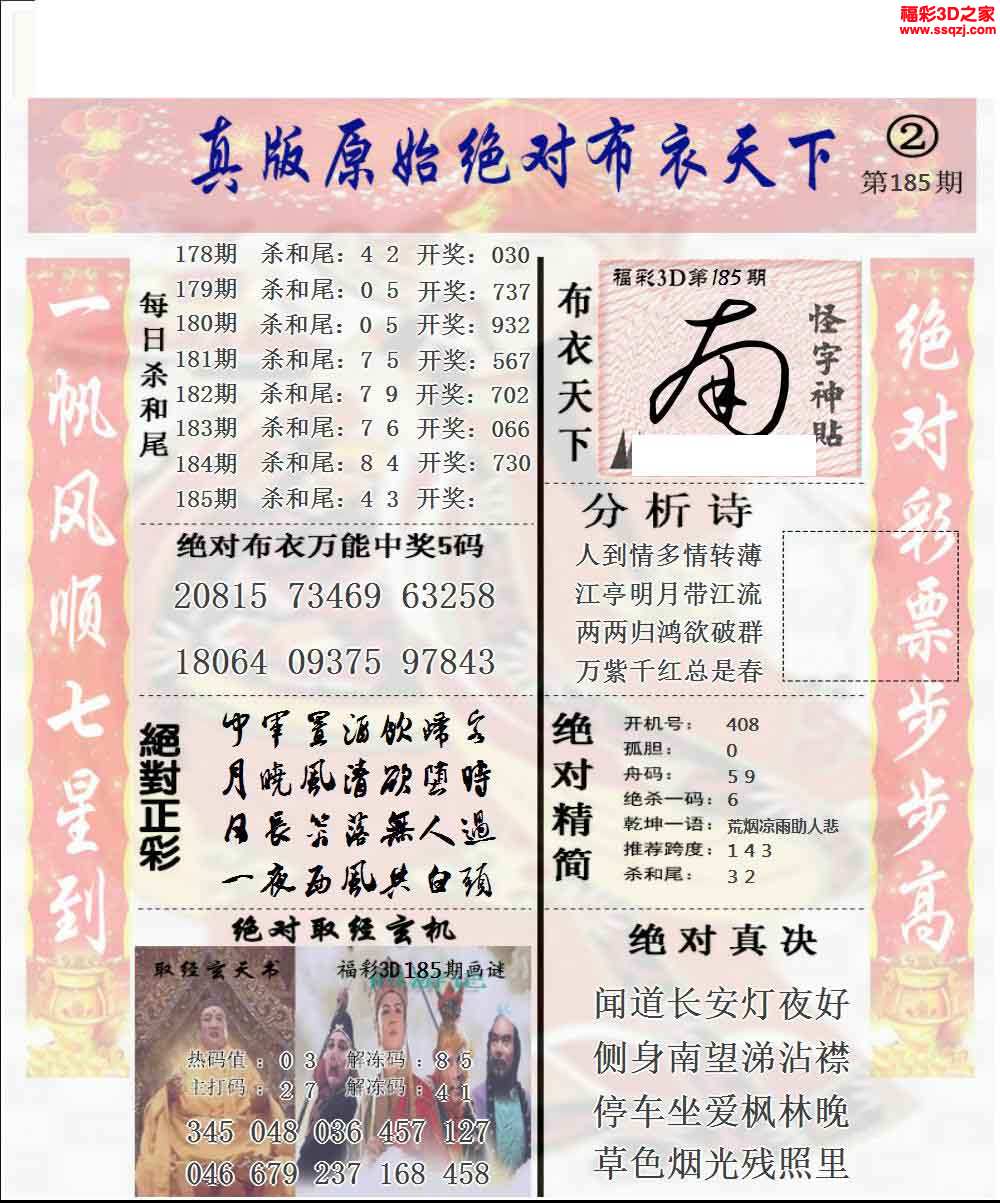 福彩3D之家
www.ssqzj.com
真版原始绝对布衣天下
②
第185期
一帆风顺七星到
每日杀和尾
178期 杀和尾：4 2 开奖：030
179期 杀和尾：0 5 开奖：737
180期 杀和尾：0 5 开奖：932
181期 杀和尾：7 5 开奖：567
182期 杀和尾：7 9 开奖：702
183期 杀和尾：7 6 开奖：066
184期 杀和尾：8 4 开奖：730
185期 杀和尾：4 3 开奖：
绝对布衣万能中奖5码
20815 73469 63258
18064 09375 97843
絕對正彩
中軍置酒飲歸客
月曉風清欲墮時
日長籬落無人過
一夜西風共白頭
绝对取经玄机
取经玄天书
福彩3D185期画谜
热码值：0 3 解冻码：8 5
主打码：2 7 解冻码：4 1
345 048 036 457 127
046 679 237 168 458
布衣天下
福彩3D第185期
怪字神貼
分析诗
人到情多情转薄
江亭明月带江流
两两归鸿欲破群
万紫千红总是春
绝对精简
开机号： 408
孤胆： 0
舟码： 5 9
绝杀一码：6
乾坤一语：荒烟凉雨助人悲
推荐跨度：1 4 3
杀和尾： 3 2
绝对真决
闻道长安灯夜好
侧身南望涕沾襟
停车坐爱枫林晚
草色烟光残照里
绝对彩票步步高